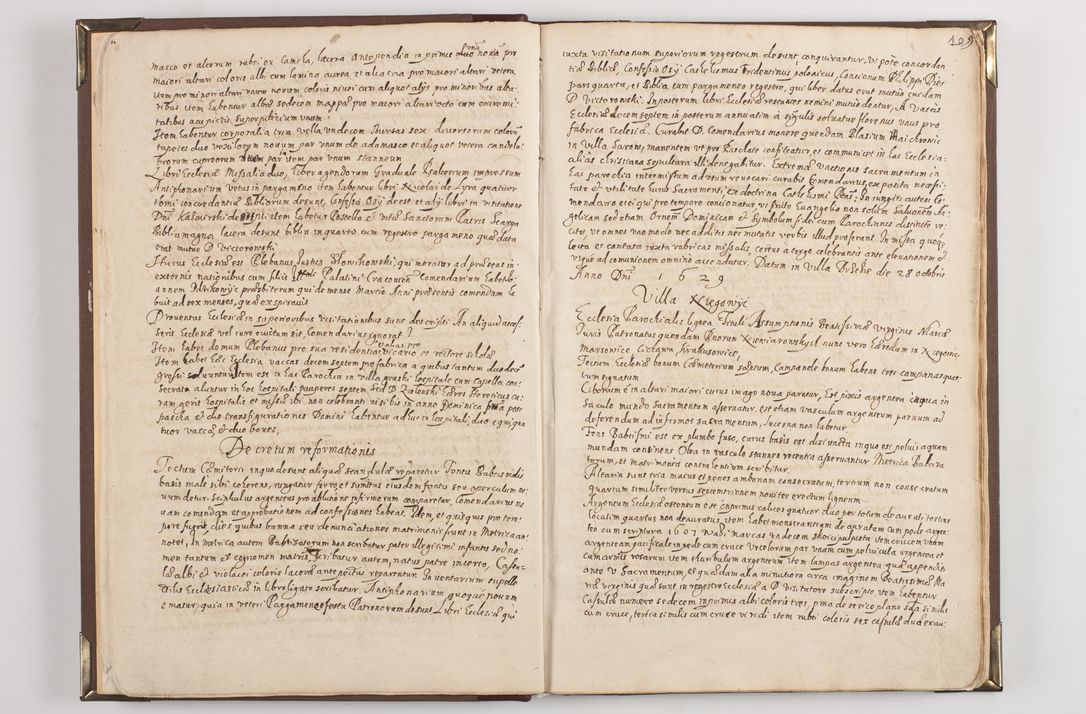 masco et alterum rubei ex camela, lacera Antependia in primis duo unũ noua pri
maiori altari coloris albi cum lamina aurea et alia tria pro maiori altari vetera
item pro minori altari unum novum coloris nivei cum aliquot aliis pro minoribus alta
ribus item habentur albæ sedecem mappæ pro maiori altari octo cum
talibus superpiliceum unum
Item habentur corporalia tria vella undecem Bursæ sex diversorum colorũ
tapetes duo novum par unum de adamasco et aliquot vetera candela
brorum cupreorum par item par unum stanneum
Libri Ecclesiæ Missalia duo, liber agendorum Graduale Psalterium impressum
Antiphonarium vetus in pargameno item habentur libri Nicolai de Lyra quatuor
tomi concordantiæ Bibliorum desunt, Confessio Osij deest et alij libri in visitatione
Dni Kasmirski descripti item habetur Postilla & vitæ Sanctorum Patris Skarga
Biblia magna, lacera desunt biblia in quarto cum regestro pargameno quæ data
erat mutuo D Victorowski
Huius Ecclesiæ est Plebanus Iustus Słowikowski qui moratur ad præsens in
externis nationibus cum filiis Palatini Cracovien comendarium habebat Io
annem presbiterum qui de mense Martio Anni præsentis comendam ha
buit ad sex menses, quæ expiravit
Proventus Ecclesiæ in superioribus visitationibus sunt descripti An aliquid acces
serit Ecclesiæ vel iure evictum sit, Comendarius ignorat
Item habet domum Plebanus pro sua residentia vicario et rectore scholæ
Item habet hæc Ecclesia vaccas decem septem pro fabrica a quibus tantum duodecim
grossi solvuntur Item est in hac Parochia in villa gruski hospitale cum Capella con
secrata aluntur in hoc hospitali pauperes septem sed D Zielenski hæres Hereticus cu
ram gerit hospitalis et missæ ibi non celebrantur nisi bis in anno Dominica prima post
pascha & die transfigurationis Domini habentur ad huc in hospitali duo equi qua
tuor vaccæ & duo boves,
Decretum reformationis
Tectum Cæmiterii in quo desunt aliquæ scandulæ reparetur Fontis Babtismalis
basis male sibi coherens, iungatur ferro et sumitas eiusdem fontis seu operculum no
vum detur. Scyphulus argenteus pro ablutione infirmorum comparetur Comendarius no
vam comendam et approbationem ad confessiones habeat. Idem, et quicquis pro tem
pore fuerit, dies quibus banna seu denuntiationes matrimonii fiunt in Metrica an
notet, In metrica autem Babtisatorum non scribatur pater illegitimi infantis sed no
men tantum & cognomen matris scribatur autem, natus patre incerto, Casu
læ albi & violacei coloris laceræ antepensiis reparentur. In ventarium supelle
ctilis Ecclesiasticæ in libro ligato scribatur. Antiphonarium quoque novum
ematur, quia in veteri Pargameneo festa Patronorum desunt Libri Ecclesiæ qui

109
iuxta visitationum superiorum regestrum desunt conquirantur, ut pote concordan
tiæ Bibliæ, Confessio Osij Catechismus Tridentinus polonicus, Concionum Philippi Diez
pars quarta, et Biblia cum pargameneo regestro, qui liber datus erat mutuo cuidam
D Victorowski. Inposterum libri Ecclesiæ restantes nemini mutuo dentur, A vaccis
Ecclesiæ decem septem in posterum annuatim a singulis solvatur florenus unus pro
fabrica Ecclesiæ. Curabit D. Comendarius monere quendam Blasium
in Villa Sarons, manentem ut pro Paschate confiteatur, et communicet in hac Ecclesia:
alias christiana sepultura illi denegabitur. Extremæ unctionis sacramentum in
hac parochia intermissum ad usum revocari curabit Comendarius, exposita necessi
tate & utilitate huius Sacramenti ex doctrina Catechismi Rom: Iniungitur autem Co
mendario et ei qui pro tempore concionatur, ut finito Evangelio non solum Salutationem An
gelicam sed etiam Oraem Dominicam & Symbolum fidei cum Parochianis distincte re
citet, ut omnes uno modo nec additis nec mutatis verbis illud proferant. In missa quoq,
lecta et cantata iuxta rubricas missalis, cereus a tergo celebrantis ante elevationem &
usque ad comunionem omnino accendatur. Datum in Villa Brzezie die 28 octobris
Anno Dni 1629
Villa Xięgowyc
Ecclesia Parochialis lignea Tituli Assumptionis Beatissimæ virginis Mariæ
Iuris Patronatus quondam Dnorum Niewiarowskych nunc vero hæredum in Xięgonic
Marsowice Cichawa, Krakusowice,
Tectum Ecclesiæ bonum Cæmeterium sæptum, Campanile bonum habens tres campanas quer
cum signatum
Ciborium è in altari maiori cuius imago nova paratur, Est pixis argentea antiqua in
sacculo mundo Sacramentum asservatur. est etiam vasculum argenteum parvum ad
deferendum ad infirmos sacramentum, lucerna non habetur.
Fons Babtismi est ex plumbo fuso, cuius basis est disiuncta in quo est pelvis aquam
mundam continens Olea in vasculo stanneo recentia asservantur Metrica Babtiza
torum, et matrimonia contrahentium scribitur.
Altaria sunt tria maius et penes ambonam consecratum, ternum non consecratum
quartum similiter versus septentrionem noviter erectum ligneum.
Argentum Ecclesiæ ostensum est inprimis calices quatuor duo per totum deaurati tertius
localim quartus non deauratus, item habet monstrantiam de auratam cum pede argen
teo cum scriptura 1607 Nabi marcas undecem item crucem unam
argenteam pacificale in pede cum cruce Urceolorum par unum cum pelvicula argentea et
cum armis rosarum item thuribulum argenteum, item lampas argentea quæ appendit
ante V Sacramentum, et quædam alia minutiora circa imaginem Beatissimæ Ma
riæ virginis quæ sunt in regestro Ecclesiæ a D Visitatore subscripto item habentur
Casulæ numero sedecem inprimis albi coloris tres, prima de serico plano secunda similis
cum cruce, tertia similis cum cruce viridi item rubei coloris sex casulæ duæ exau: